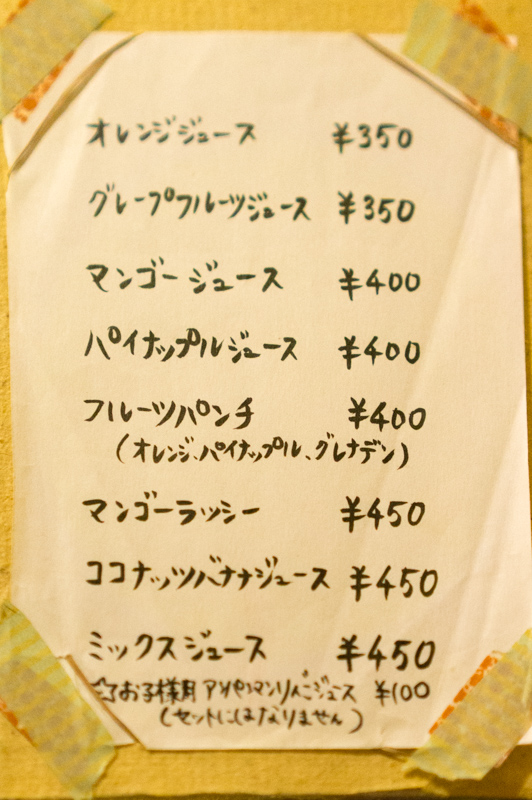 オレンジジュース ¥350
グレープフルーツジュース ¥350
マンゴージュース ¥400
パイナップルジュース ¥400
フルーツパンチ ¥400
(オレンジ、パイナップル、グレナデン)
マンゴーラッシー ¥450
ココナッツバナナジュース ¥450
ミックスジュース ¥450
☆お子様用 アンパンマンりんごジュース ¥100
(セットにはなりません)